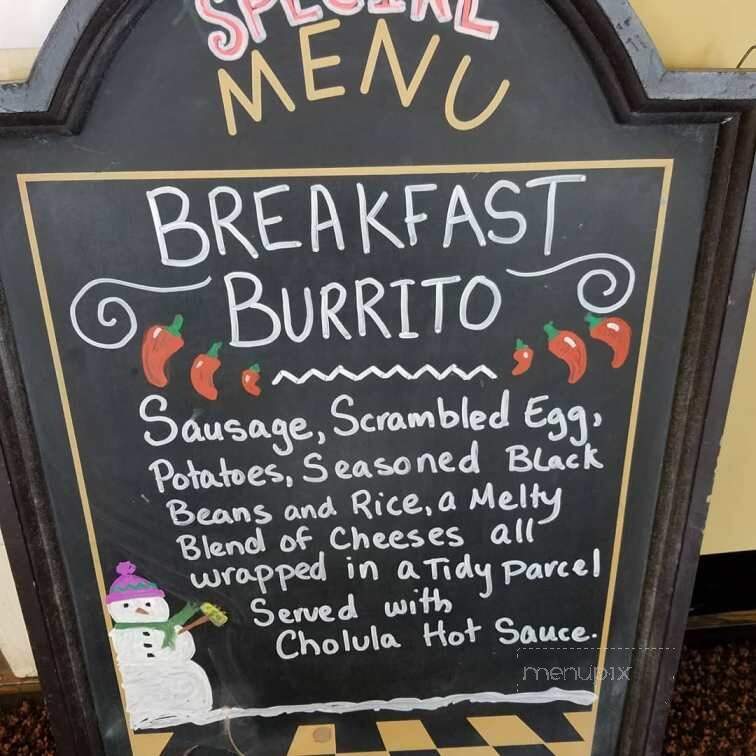 SPECIAL
MENU
BREAKFAST
BURRITO
Sausage, Scrambled Egg,
Potatoes, Seasoned Black
Beans and Rice, a Melty
Blend of Cheeses all
wrapped in a Tidy Parcel
Served with
Cholula Hot Sauce.
menupix